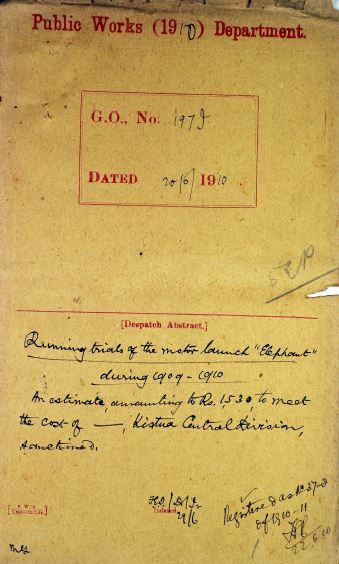 Public Works (1910) Department.
G.O., No. 197 I
DATED 20/6/1910
[Despatch Abstract.]
Running trials of the motor launch "Elephant"
during 1909-1910
An estimate, amounting to Rs. 1,530, to meet
the cost of —, Kistna Central Division,
sanctioned.
Indexed
29/6
Registered as No. 37-I
of 1910-11
22.6.10